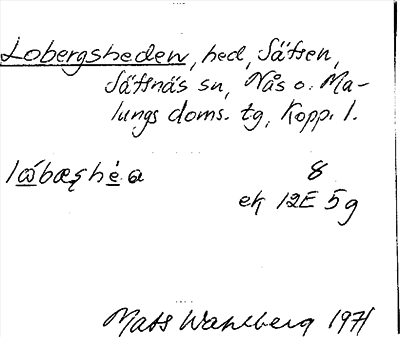 Lobergsheden, hed, Säfsen,
Säfsnäs sn, Nås o. Ma-
lungs doms. tg, Kopp. l.
8
ek 12E 5g
Mats Wahlberg 1971